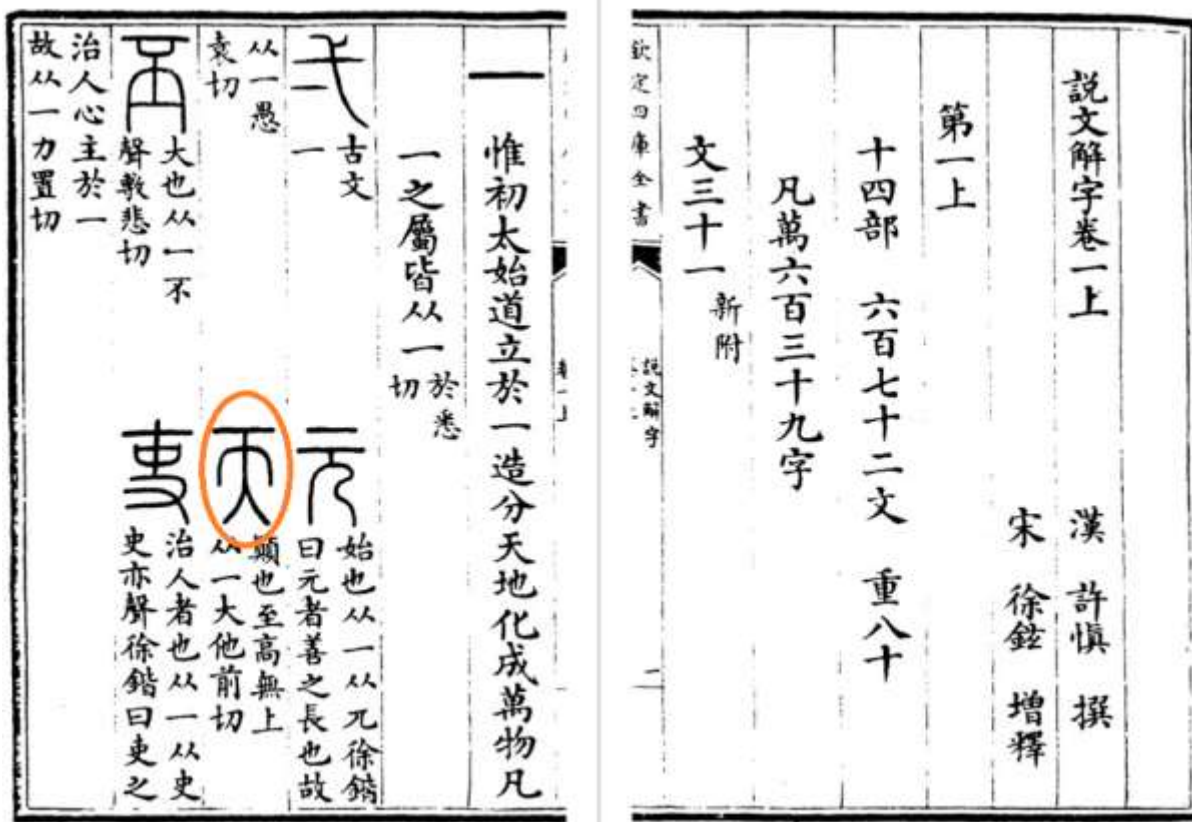 説文解字卷一上 漢 許慎 撰
宋 徐鉉 增釋
第一上
十四部 六百七十二文 重八十
凡萬六百三十九字
文三十一 新附
欽定四庫全書 説文解字
一 惟初太始道立於一造分天地化成萬物凡
一之屬皆从一 於悉切
弌 古文一 元 始也从一从兀徐鍇曰元者善之長也故
从一愚袁切 天 顚也至高無上从一大他前切
丕 大也从一不聲敷悲切 吏 治人者也从一从史史亦聲徐鍇曰吏之
治人心主於一故从一力置切